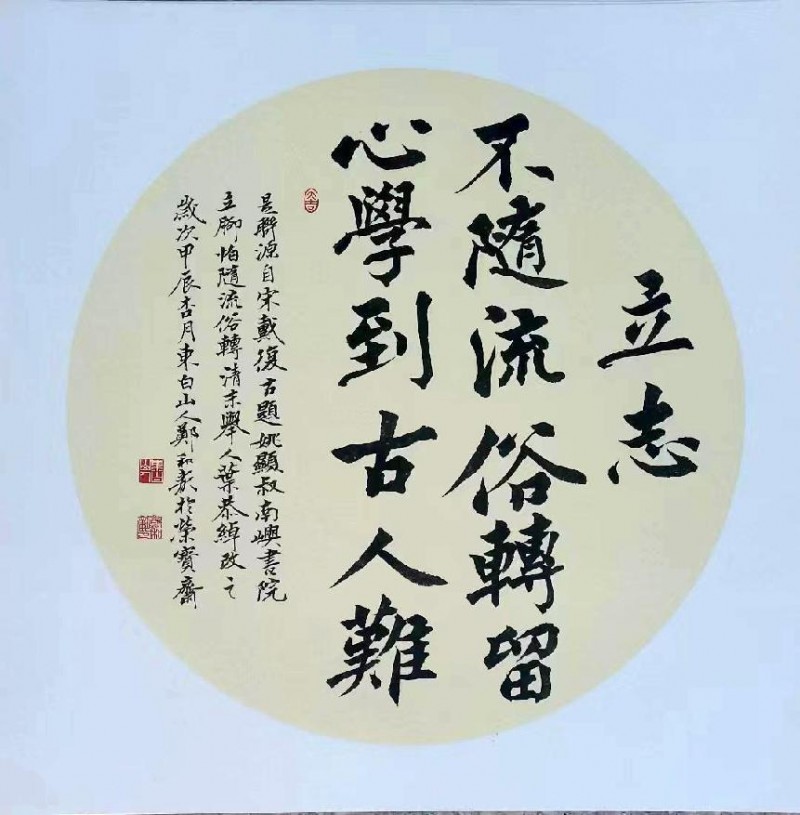 立志
不隨流俗轉留
心學到古人難
是聯源自宋戴復古題姚顯叔南嶼書院
立腳怕隨流俗轉清末舉人葉恭綽改之
歲次甲辰杏月東白山人鄭和新於榮寶齋